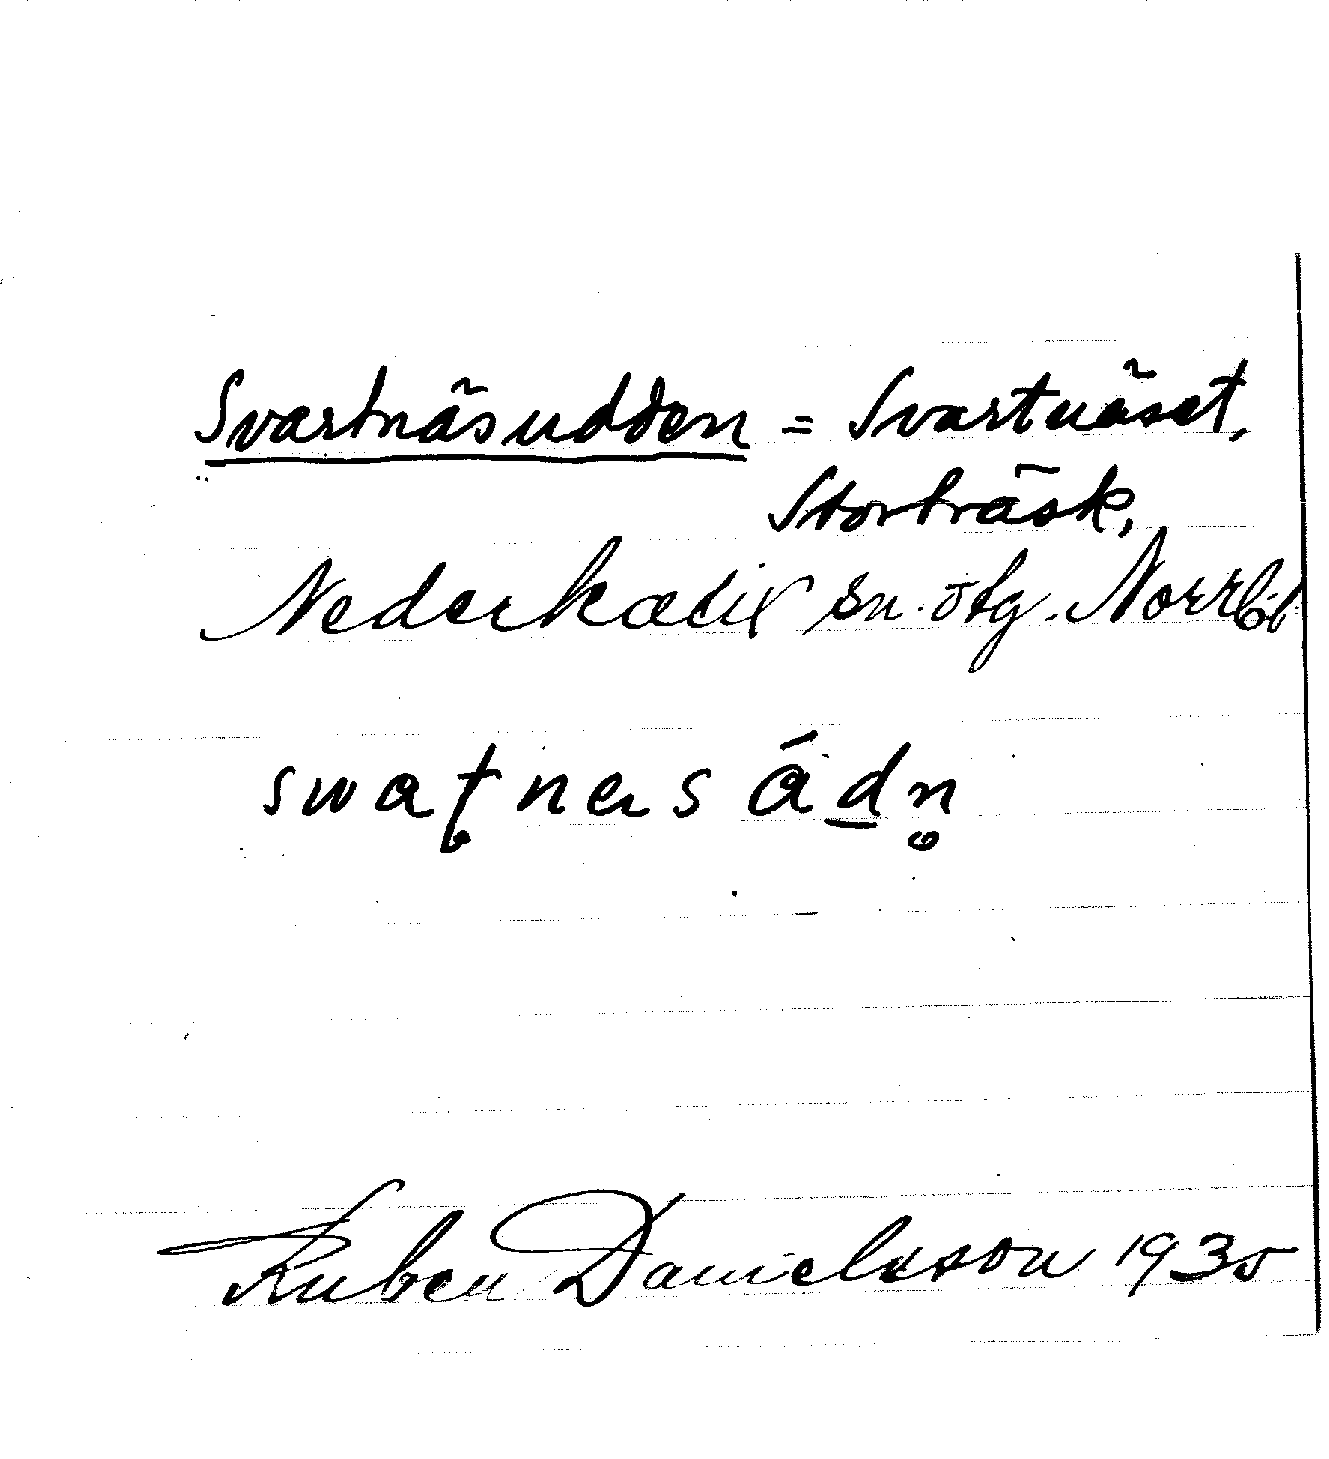 Svartnäsudden = Svartnäset,
Storträsk,
Nederkalix sn. ötg. Norrb. l.
swaʈnes ádn̥
Ruben Danielsson 1935